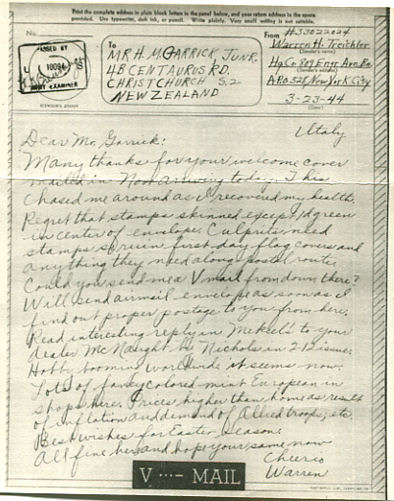 Print the complete address in plain block letters in the panel below, and your return address in the space
provided. Use typewriter, dark ink, or pencil. Write plainly. Very small writing is not suitable.
No.
PASSED BY
10094
ARMY EXAMINER
(CENSOR'S STAMP)
To
MR H. M. GARRICK, JUNR.
4B CENTAURUS RD.
CHRISTCHURCH S.2
NEW ZEALAND
From
#33022024
Warren H. Treichler
(Sender's name)
Hq Co 809 Engr. Avn. Bn.
(Sender's address)
A.P.O. 528, New York City
3-23-44
(Date)
Italy
Dear Mr. Garrick:
Many thanks for your welcome cover
mailed in Nov. arriving today. This
chased me around as I recovered my health.
Regret that stamps skinned except 1d green
in center of envelope. Culprits need
stamps so ruin first day flag covers and
anything they need along postal route.
Could you send me a V mail from down there?
Will send airmail envelope as soon as I
find out proper postage to you from here.
Read interesting reply in Mekeel's to your
dealer McNaught by Nichols in 2-12 issue.
Hobby booming worldwide it seems now.
Lots of fancy colored mint European in
shops here. Prices higher than home as result
of inflation and demand of Allied troops, etc.
Best wishes for Easter Season.
All fine here and hope your same now
Cheerio
Warren
V ...— MAIL